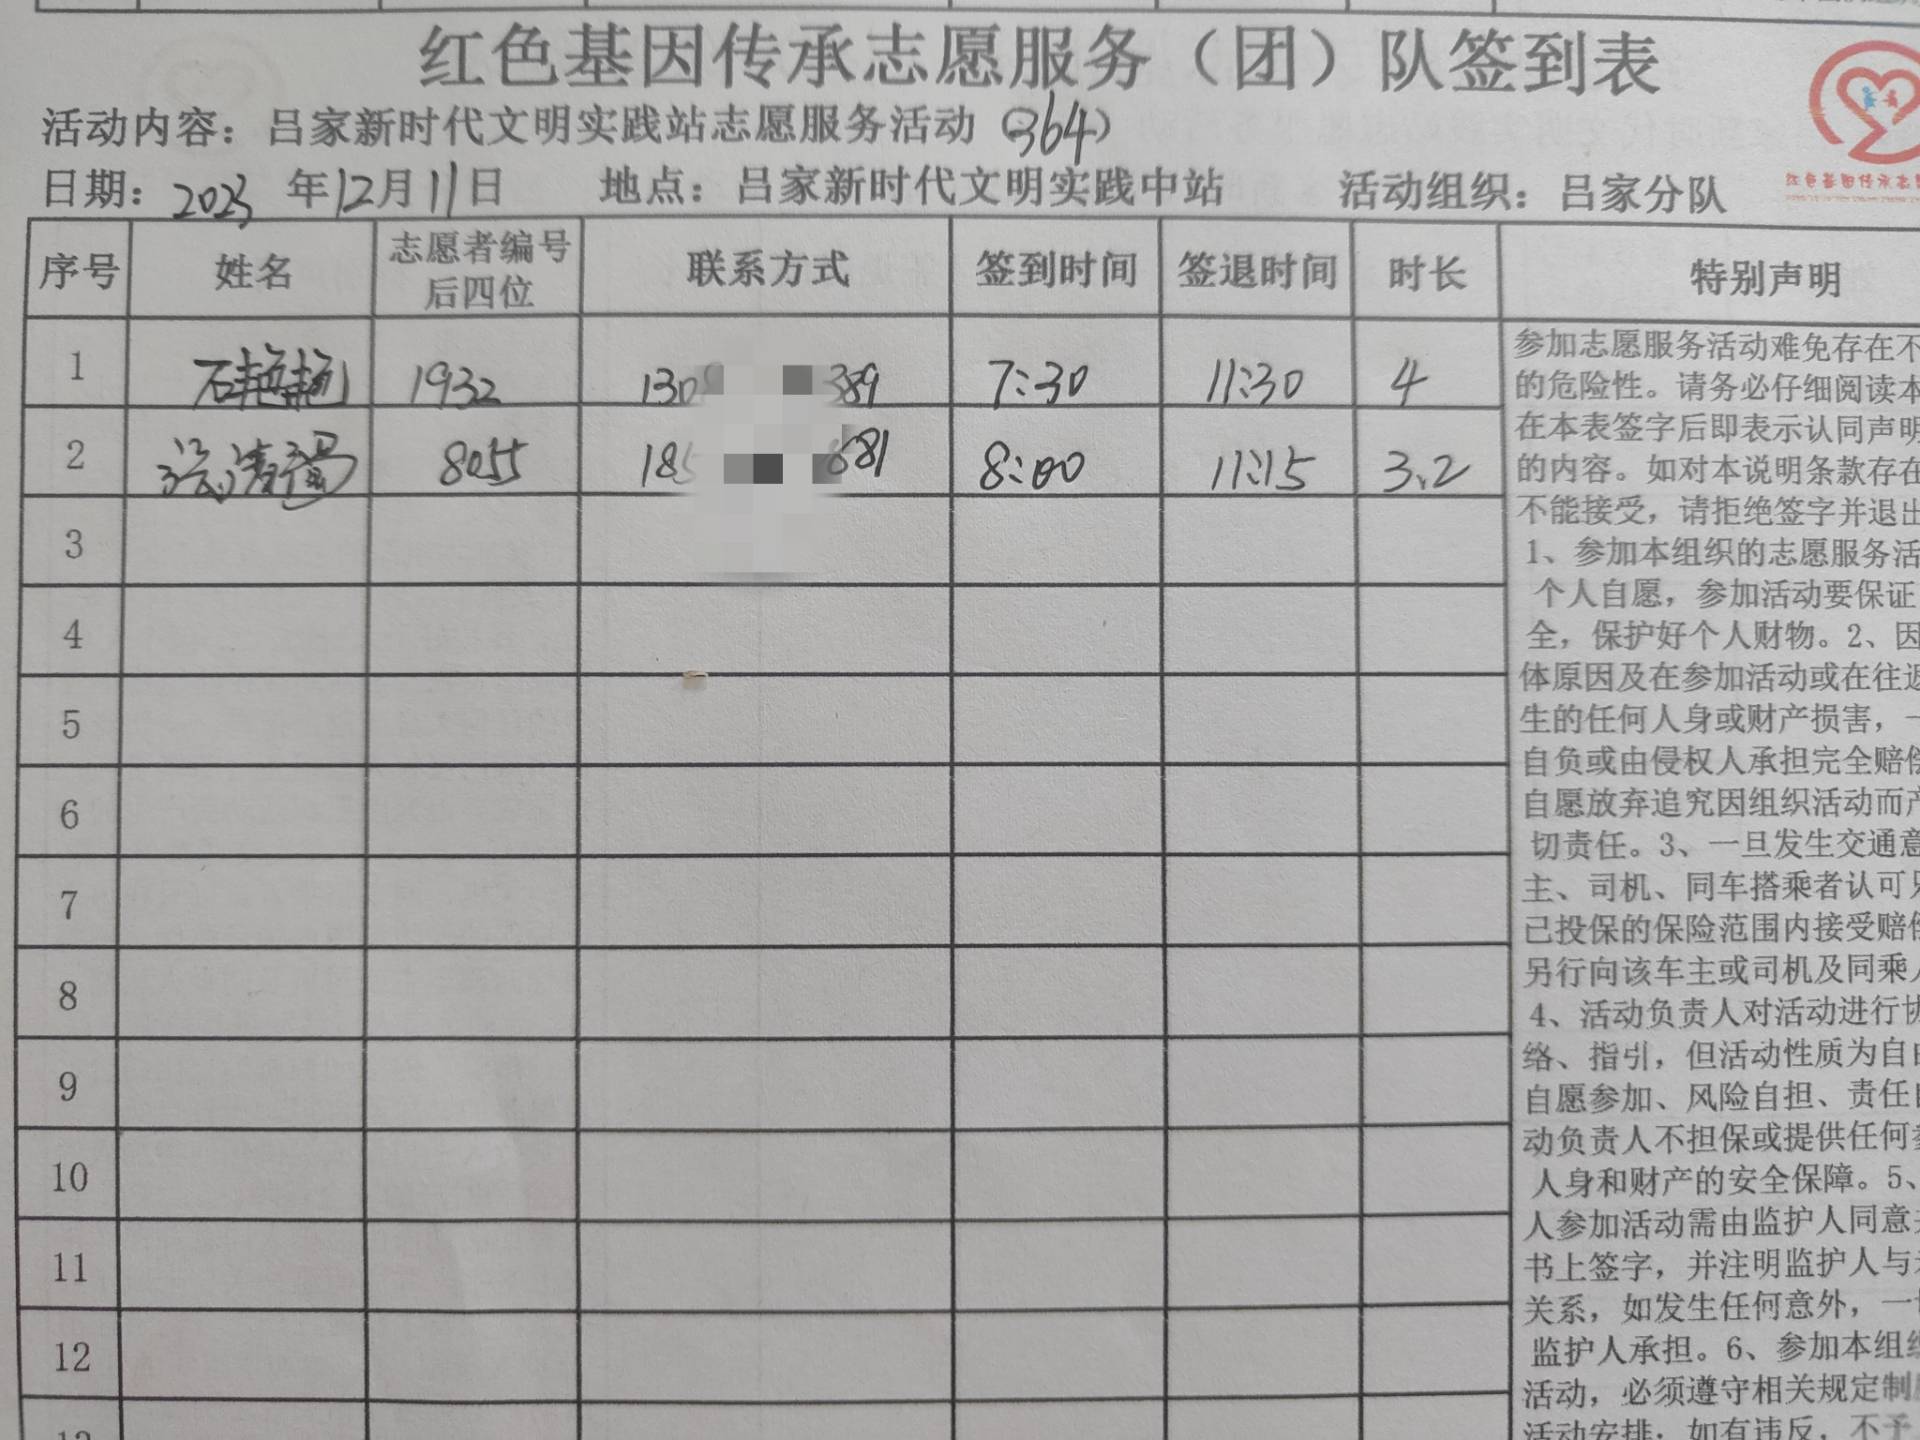 红色基因传承志愿服务（团）队签到表
活动内容：吕家新时代文明实践站志愿服务活动（364）
日期：2023年12月11日 地点：吕家新时代文明实践中站 活动组织：吕家分队
序号 姓名 志愿者编号后四位 联系方式 签到时间 签退时间 时长 特别声明
1 石艳艳 1932 130 389 7:30 11:30 4
2 8055 185 881 8:00 11:15 3.2
3
4
5
6
7
8
9
10
11
12
13
参加志愿服务活动难免存在不
的危险性。请务必仔细阅读本
在本表签字后即表示认同声明
的内容。如对本说明条款存在
不能接受，请拒绝签字并退出
1、参加本组织的志愿服务活
个人自愿，参加活动要保证
全，保护好个人财物。2、因
体原因及在参加活动或在往返
生的任何人身或财产损害，一
自负或由侵权人承担完全赔偿
自愿放弃追究因组织活动而产
切责任。3、一旦发生交通意
主、司机、同车搭乘者认可只
已投保的保险范围内接受赔偿
另行向该车主或司机及同乘人
4、活动负责人对活动进行协
络、指引，但活动性质为自由
自愿参加、风险自担、责任自
动负责人不担保或提供任何参
人身和财产的安全保障。5、
人参加活动需由监护人同意并
书上签字，并注明监护人与未
关系，如发生任何意外，一切
监护人承担。6、参加本组织
活动，必须遵守相关规定制度
活动安排；如有违反，不予